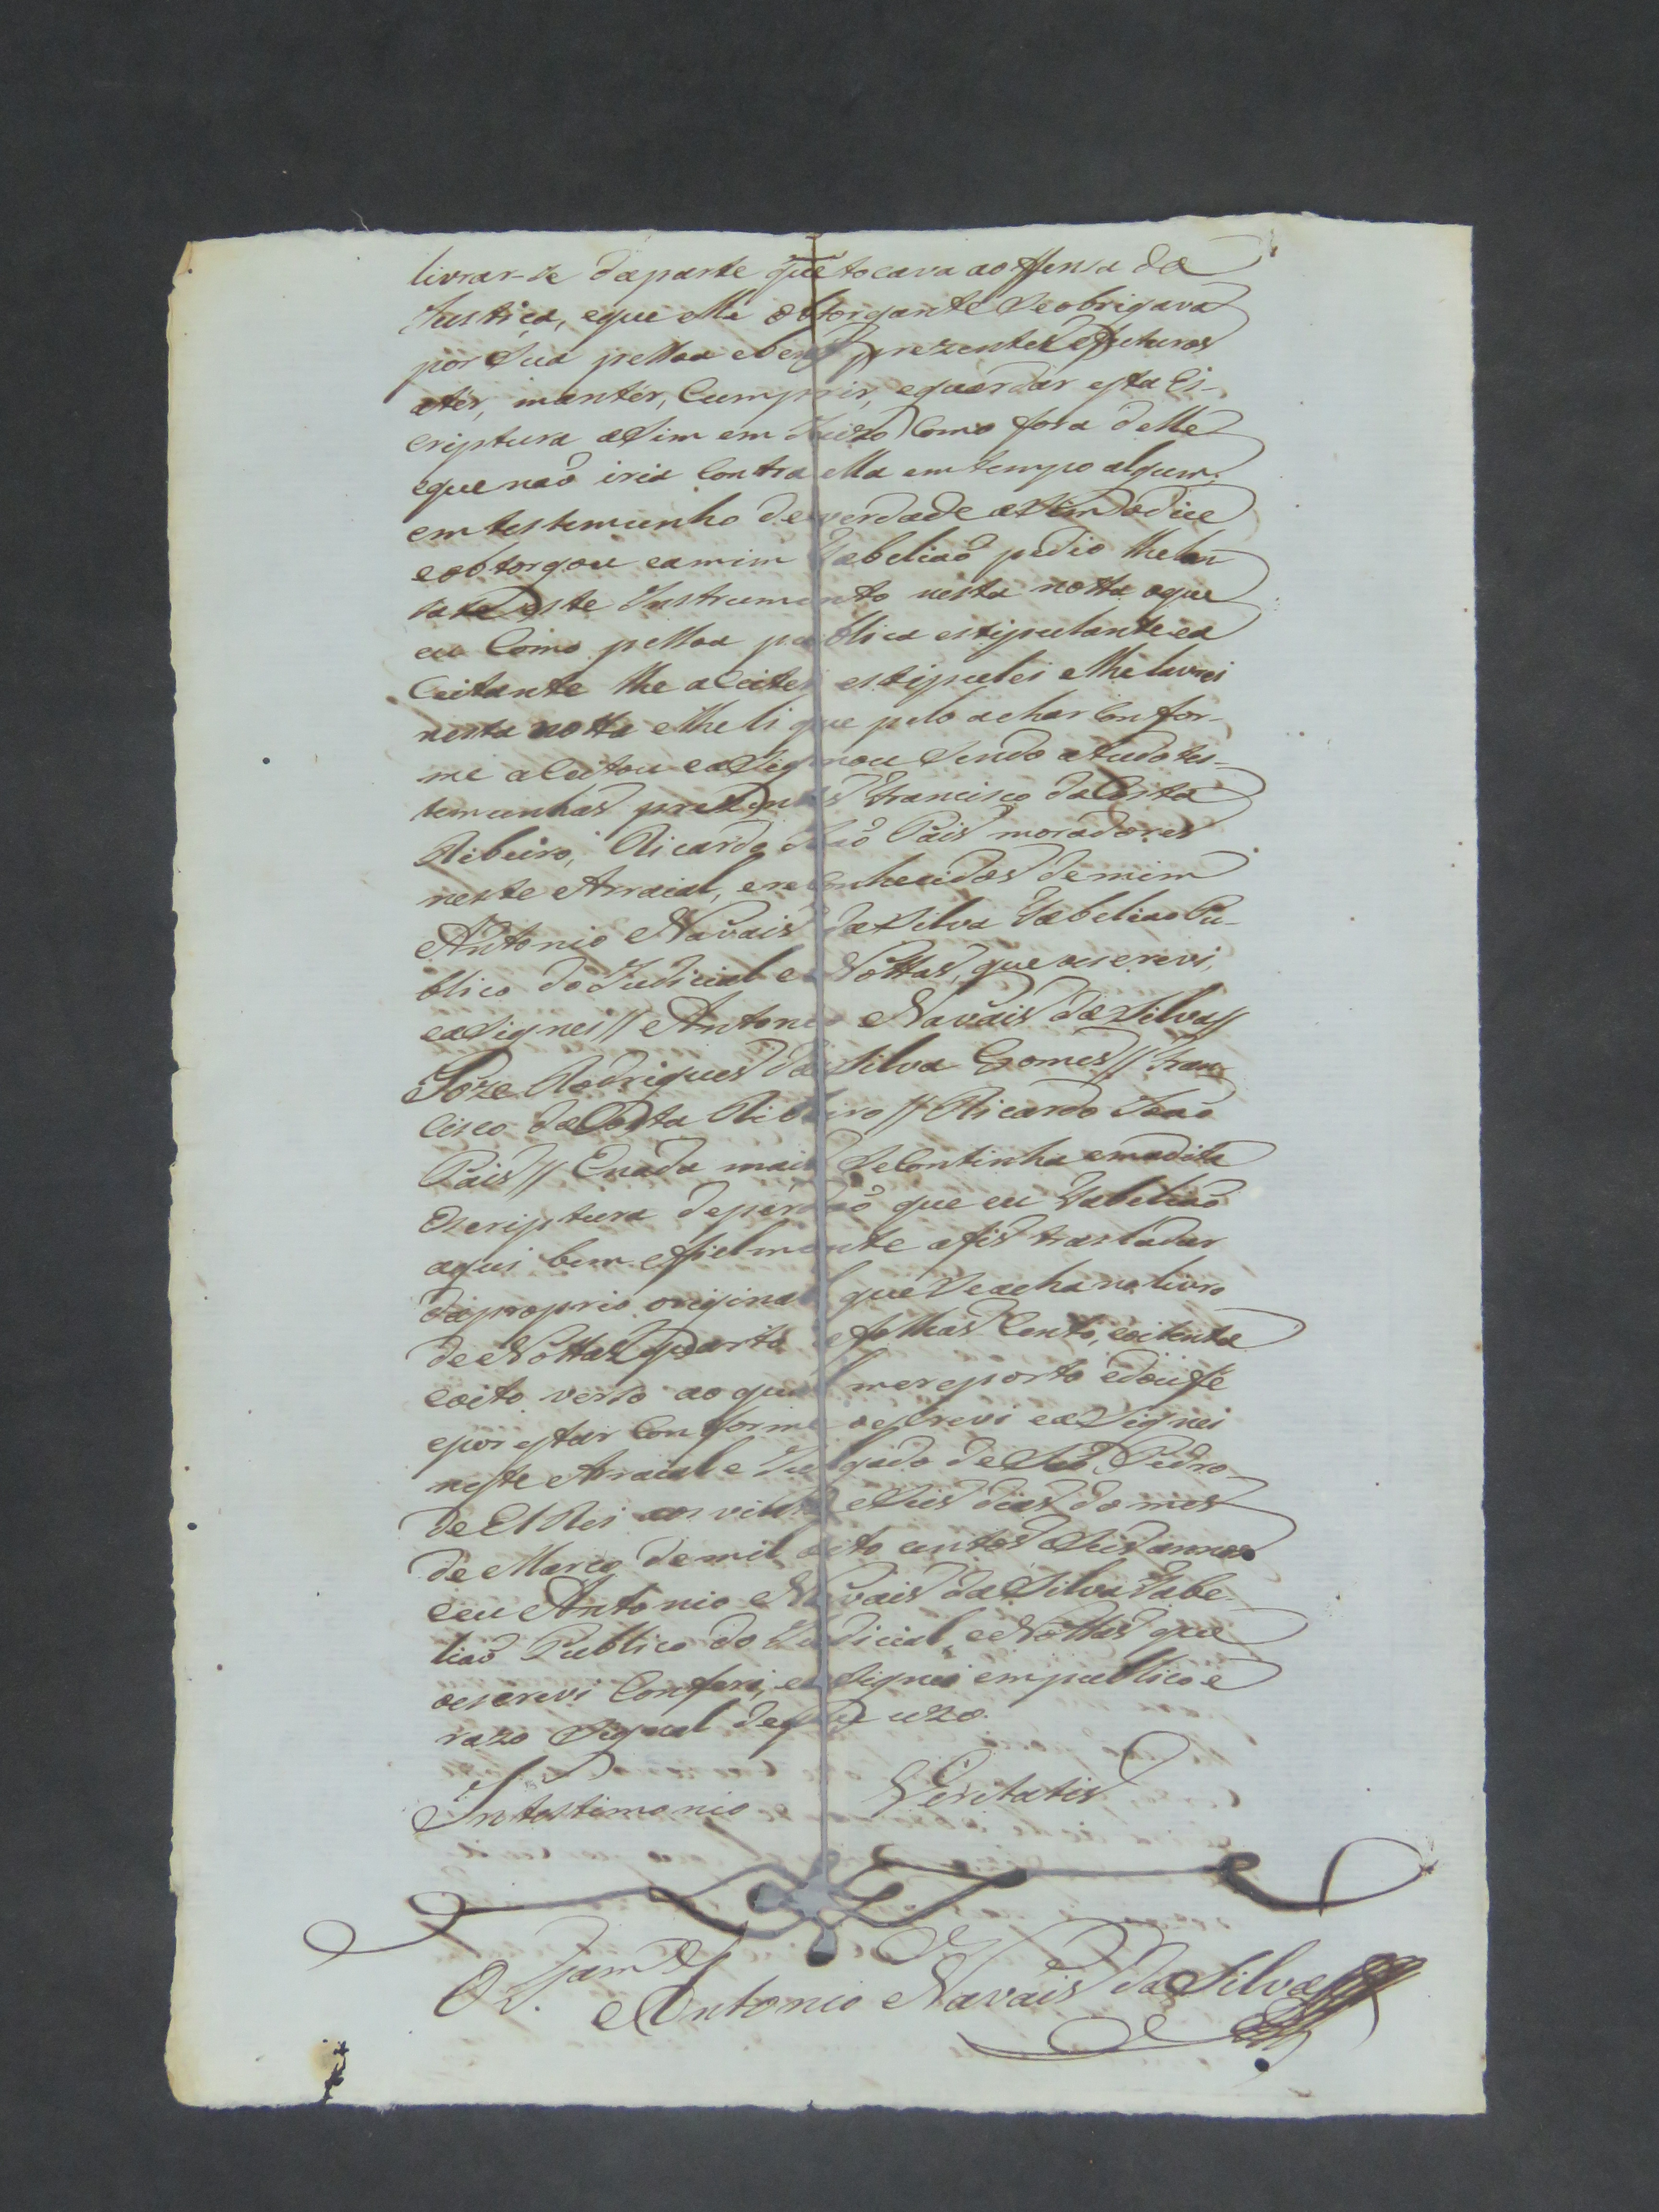 livrar-se da parte que tocava ao offensa da
Justiça, e que elle obtorgante se obrigava
por sua pessoa e bens prezentes e futuros
a ter, mantér, Cumprir, e guardar esta Es-
criptura asim em Juizo Como fora delle
e que naõ iria Contra ella em tempo algum;
em testemunho de verdade asim o dice
e obtorgou e a mim Tabeliaõ pedio lhe lan
sase este Instrumento nesta notta o que
eu Como pessoa publica estipulante ea
Ceitante lhe aCeitei estipulei e lhe lavrei
nesta notta e lhe li que pelo achar Confor-
me aCeitou e asignou sendo a tudo tes-
temunhas prezentes Francisco da Costa
Ribeiro, Ricardo Joaõ Pais moradores
neste Arraial, e reConhecidos de mim
Antonio Navais da Silva Tabeliao Pu-
blico do Judicial e Nottas, que oescrevi,
e asignei // Antonio Navais da Silva //
Joze Rodrigues da Silva Gomes // Fran-
Cisco da Costa Ribeiro // Ricardo Joaõ
Pais // E nada mais se Continha em a dita
Escriptura de perdaõ que eu Tabeliaõ
aqui bem e fielmente a fis trasladar
da propria original que se acha no livro
de Nottas quarto de folhas Cento, e oitenta
e oito verso ao qual me reporto e dou fé
e por estar Conforme a esCrevi e asignei
neste Arraial e Julgado de Saõ Pedro
de El Rei aos vinte e seis dias do mes
de Março de mil oito centos e seis annos
e eu Antonio Navais da Silva Tabe-
liaõ Publico do Judicial, e Nottas que
oescrevi Conferi, e asignei em publico e
razo signal de que uzo.
In testimonio Veritatis
O T.am
Antonio Navais da Silva